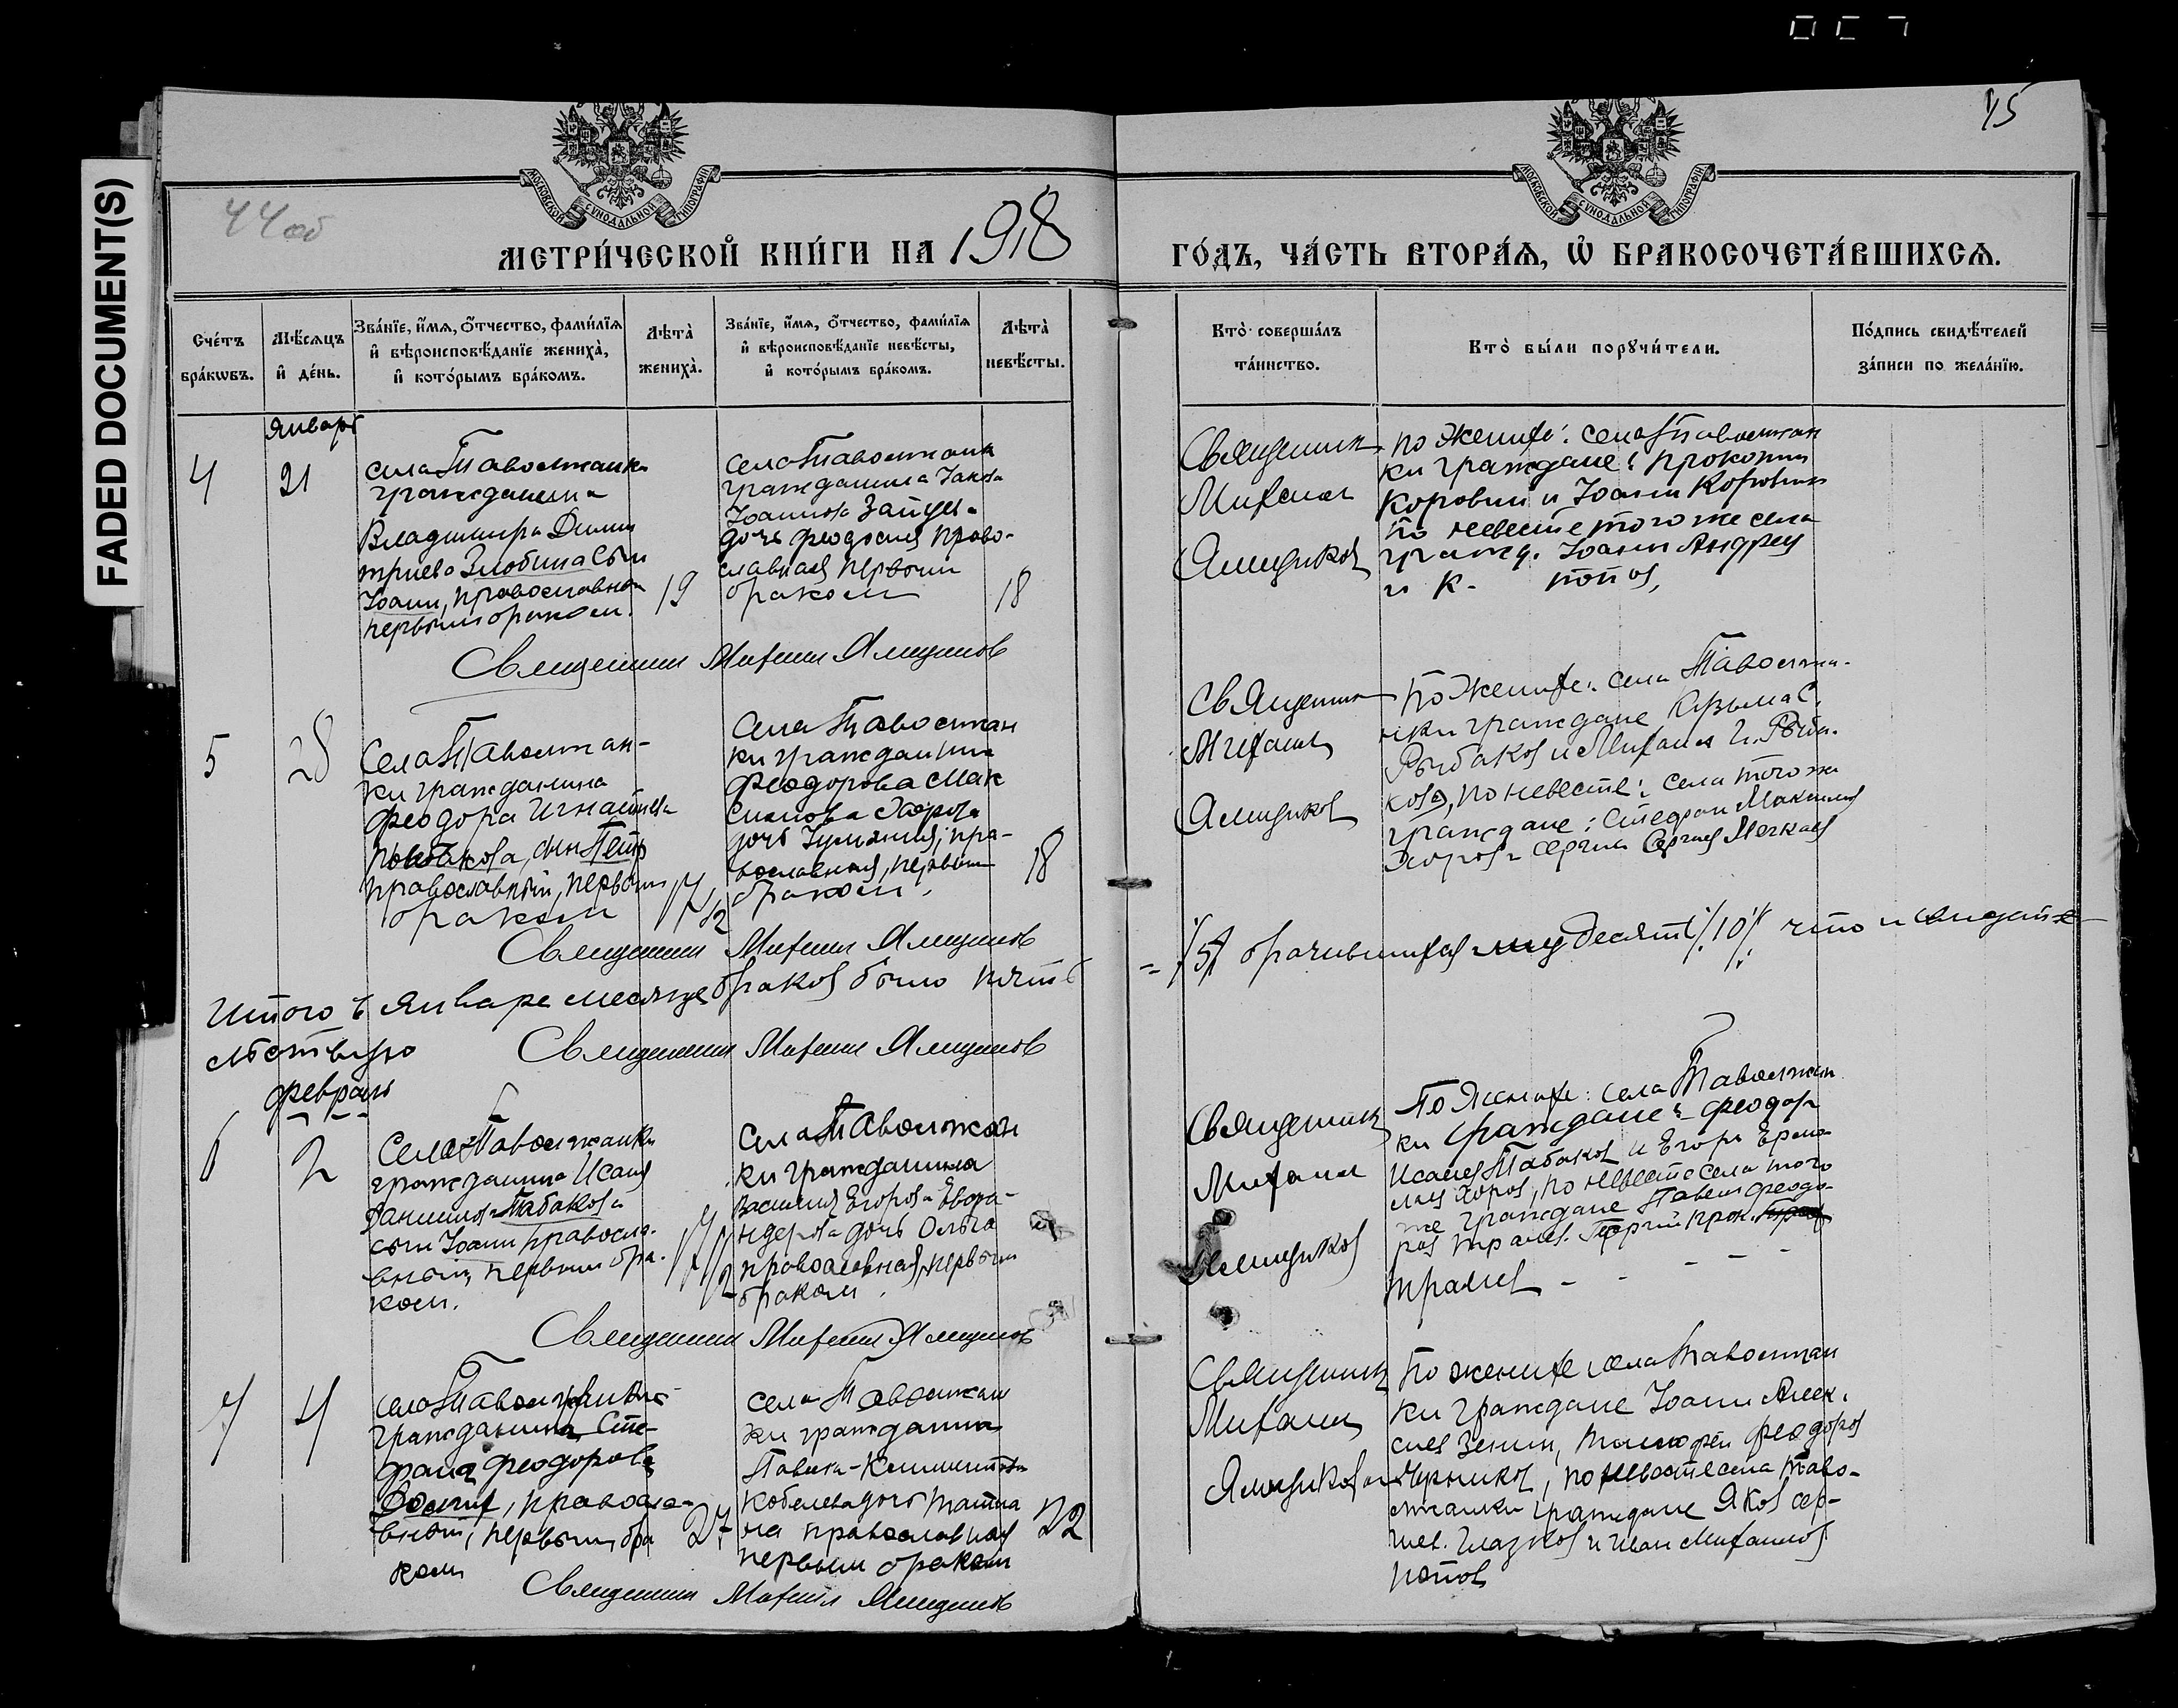 FADED DOCUMENT(S)
44 об
45
МОСКОВСКОЙ СѴНОДАЛЬНОЙ ТИПОГРАФІИ
МОСКОВСКОЙ СѴНОДАЛЬНОЙ ТИПОГРАФІИ
МЕТРИ́ЧЕСКОЙ КНИ́ГИ НА 1918
ГО́ДЪ, ЧА́СТЬ ВТОРА́Ѧ, Ѡ҆ БРАКОСОЧЕТА́ВШИХСѦ.
Сче́тъ бра́кѡвъ.
Мѣ́сѧцъ и҆ де́нь.
Зва́нїе, и҆́мѧ, ѻ҆́тчество, фами́лїѧ
и҆ вѣроисповѣ́данїе жениха̀,
и҆ кото́рымъ бра́комъ.
Лѣта̀ жениха̀.
Зва́нїе, и҆́мѧ, ѻ҆́тчество, фами́лїѧ
и҆ вѣроисповѣ́данїе невѣ́сты,
и҆ кото́рымъ бра́комъ.
Лѣта̀ невѣ́сты.
Кто̀ соверша́лъ та́инство.
Кто̀ бы́ли порꙋчи́тели.
По́дпись свидѣ́телей за́писи по жела́нїю.
Январь
4
21
села Таволжанки
гражданина
Владимира Дими
триева Злобина сын
Иоанн, православной
первым браком.
19
села Таволжанк
гражданина Иакова
Иоаннова Зайцева
дочь Феодосия право-
славная первым
браком
18
Священник
Михаил
Ямщиков
по женихе: села Таволжан
ки граждане: Прокопий
Коровин и Иоанн Коровин
по невесте того же села
гражд. Иоанн Андрей
и К. Попов,
Священник Михаил Ямщиков
5
28
Села Таволжан-
ки гражданина
Феодора Игнатиева
Рыбакова, сын Петр
православный, первым
браком
17 1/2
Села Таволжан
ки гражданина
Феодорова Мак
симова Хорова
дочь Иулиания, пра-
вославная, первым
браком.
18
Священник
Михаил
Ямщиков
по женихе: села Таволжан-
ки граждане Кузьма С.
Рыбаков и Михаил И. Рыба-
ков, по невесте: села того же
граждане: Стефан Максимов
Хоров и Сергий Мечкаев
Священник Михаил Ямщиков
Итого в январе месяце браков было пять
= /5/ брачившихся лиц десять /10/ что и свидет-
ельствую Священник Михаил Ямщиков
февраль
6
2
Села Таволжанки
гражданина Исаия
Даниилова Табакова
сын Иоанн правосла-
вный, первым бра-
ком.
17 1/2
Села Таволжан
ки гражданина
Василия Егорова
дочь Ольга
православная, первым
браком.
Священник
Михаил
Ямщиков
По женихе: села Таволжан
ки граждане: Феодор
Исаиев Табаков и Егор Ермо
лаев Хоров, по невесте села того
же граждане Павел Феодо
ров
Священник Михаил Ямщиков
7
4
села Таволжанки
гражданина Сте-
фана Феодорова
правосла-
вный, первым бра
ком
27
села Таволжан
ки гражданина
Павла Климентова
Кобелева дочь Татиа
на православная
первым браком
22
Священник
Михаил
Ямщиков
По женихе села Таволжан
ки граждане Иоанн Алек-
сиев Зенин, Тимофей Феодоров
по невесте села Таво-
лжанки граждане Яков Сер-
гиев. Глазков и Иван Михаилов
Попов
Священник Михаил Ямщиков